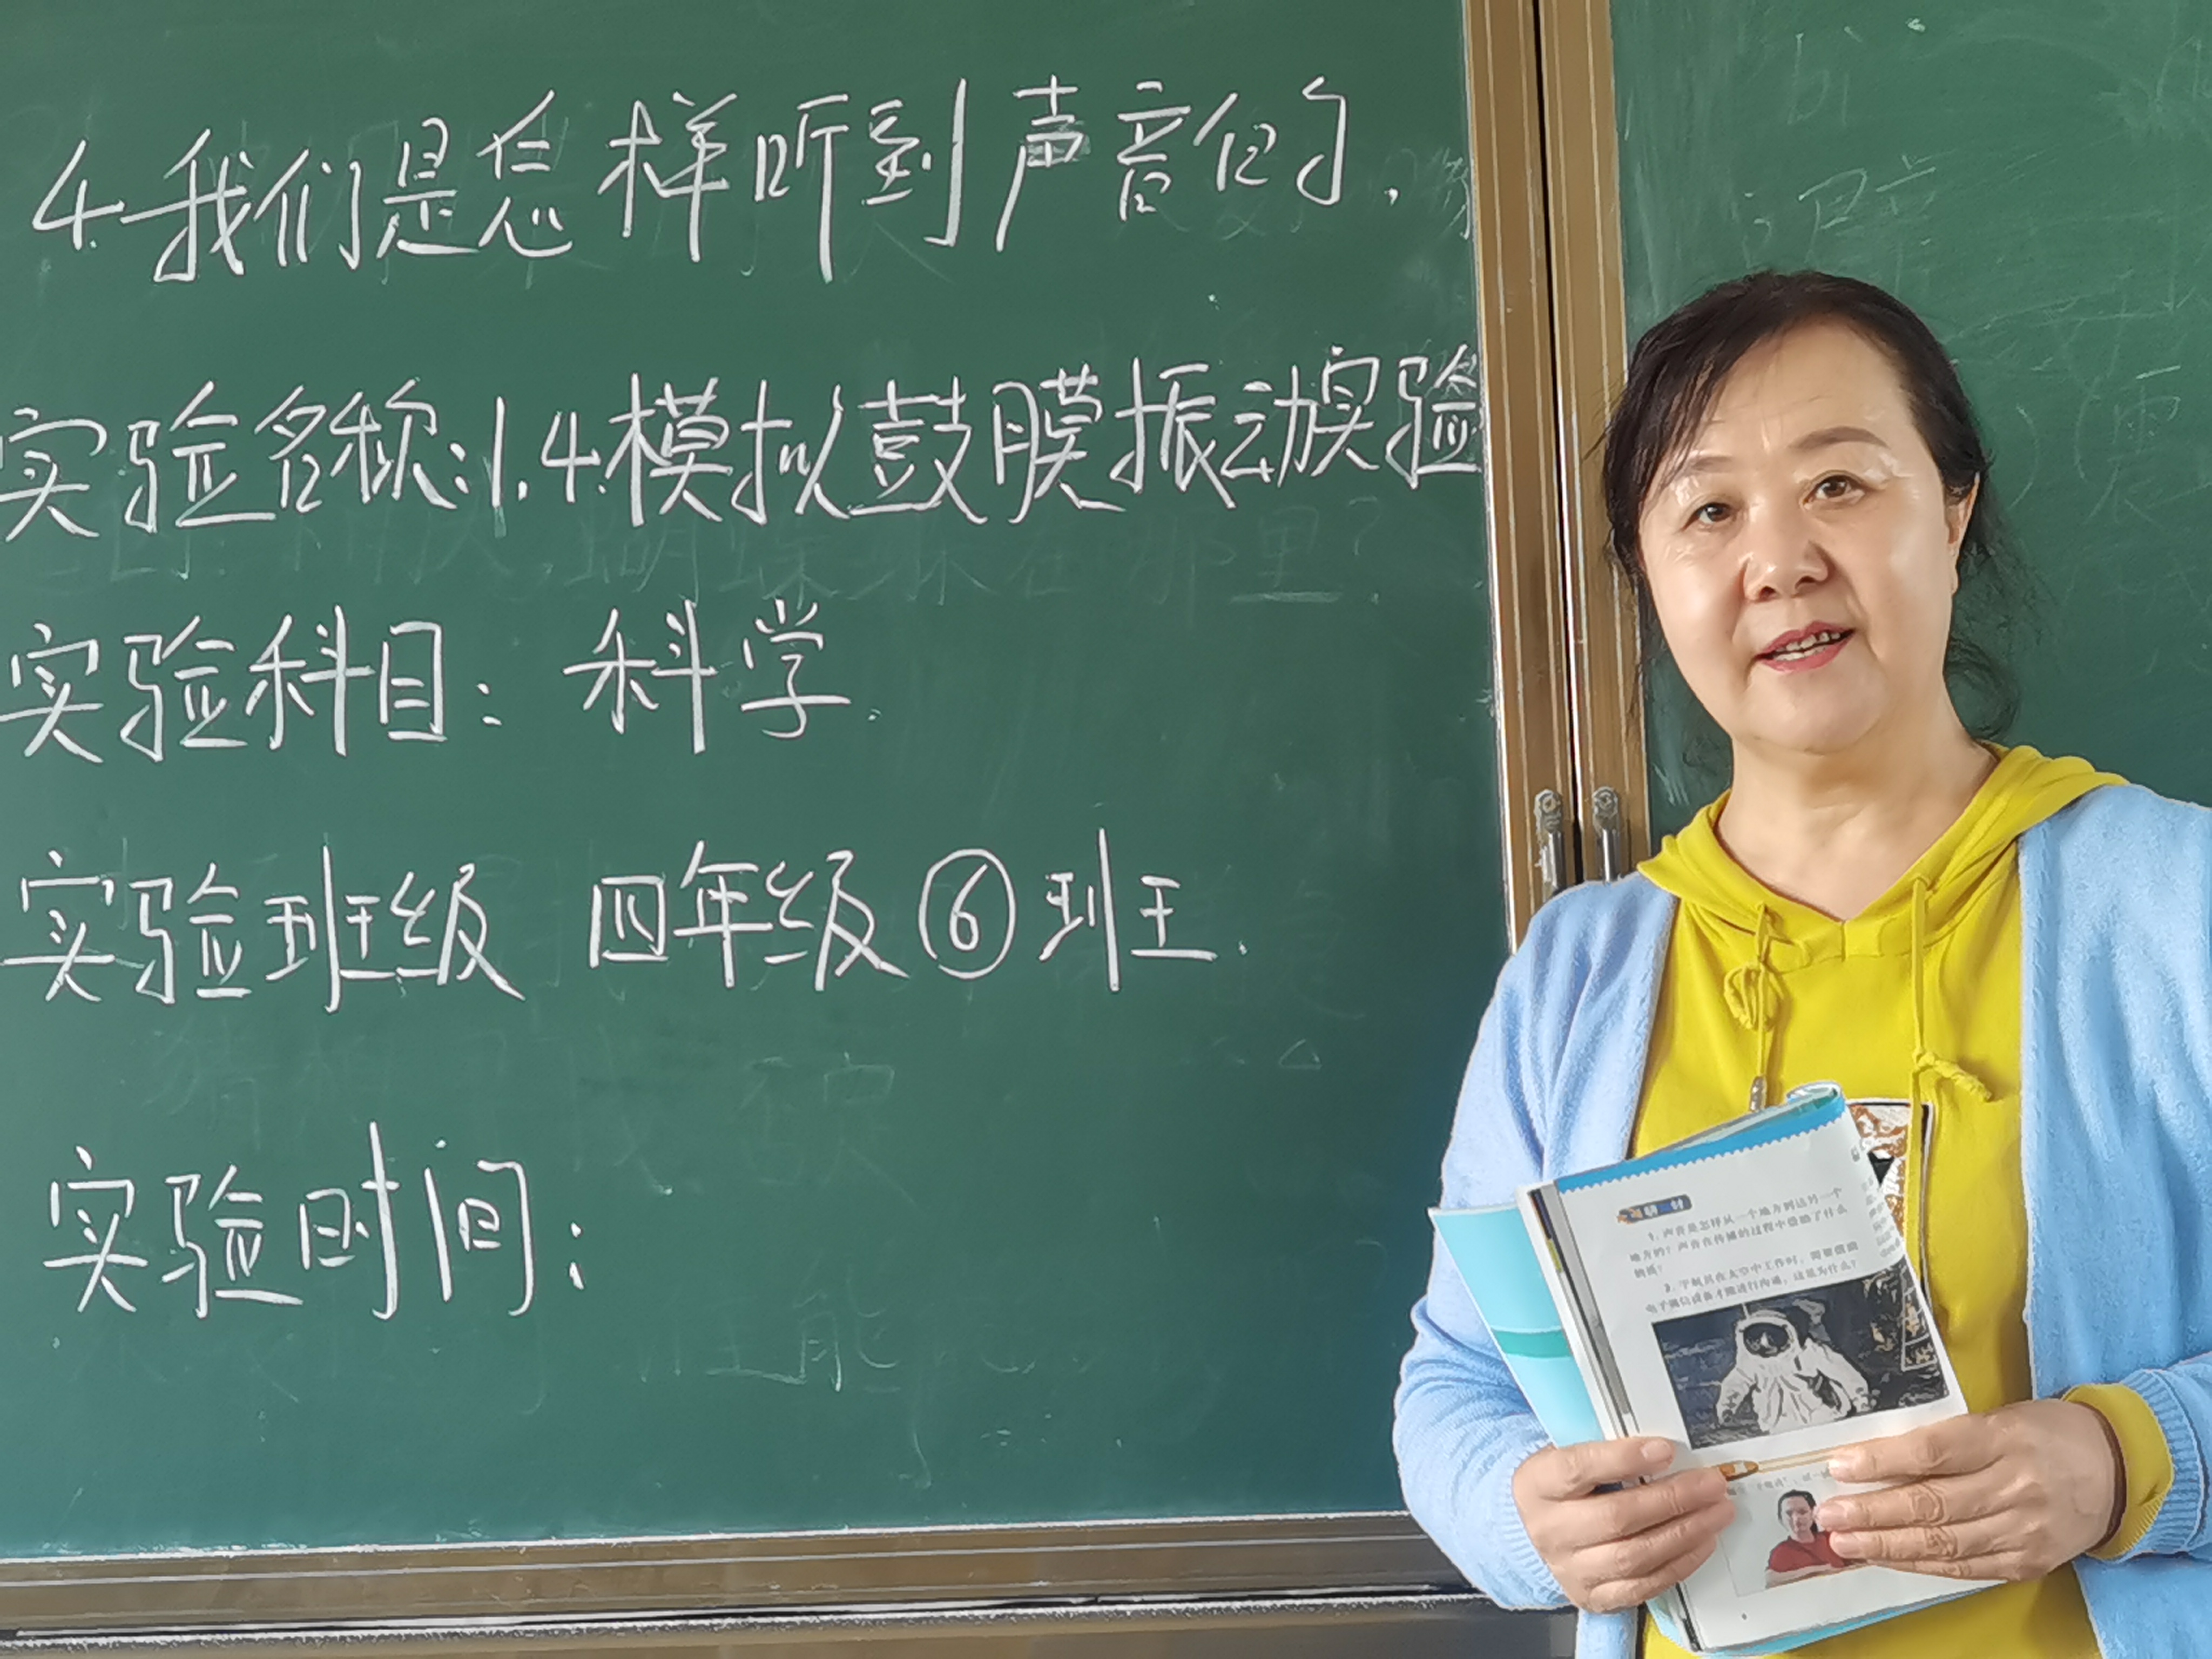 4.我们是怎样听到声音的.
实验名称:1.4.模拟鼓膜振动实验
实验科目: 科学.
实验班级 四年级⑥班.
实验时间:
研讨
1. 声音是怎样从一个地方到达另一个
地方的?声音在传播的过程中借助了什么
物质?
2. 宇航员在太空中工作时,需要借助
电子通信设备才能进行沟通,这是为什么?